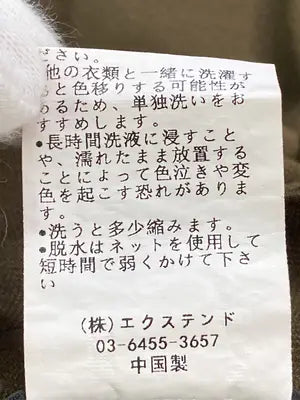 ださい。
他の衣類と一緒に洗濯す
ると色移りする可能性が
あるため、単独洗いをお
すすめします。
•長時間洗液に浸すこと
や、濡れたまま放置する
ことによって色泣きや変
色を起こす恐れがありま
す。
•洗うと多少縮みます。
•脱水はネットを使用して
短時間で弱くかけて下さ
い
(株)エクステンド
03-6455-3657
中国製